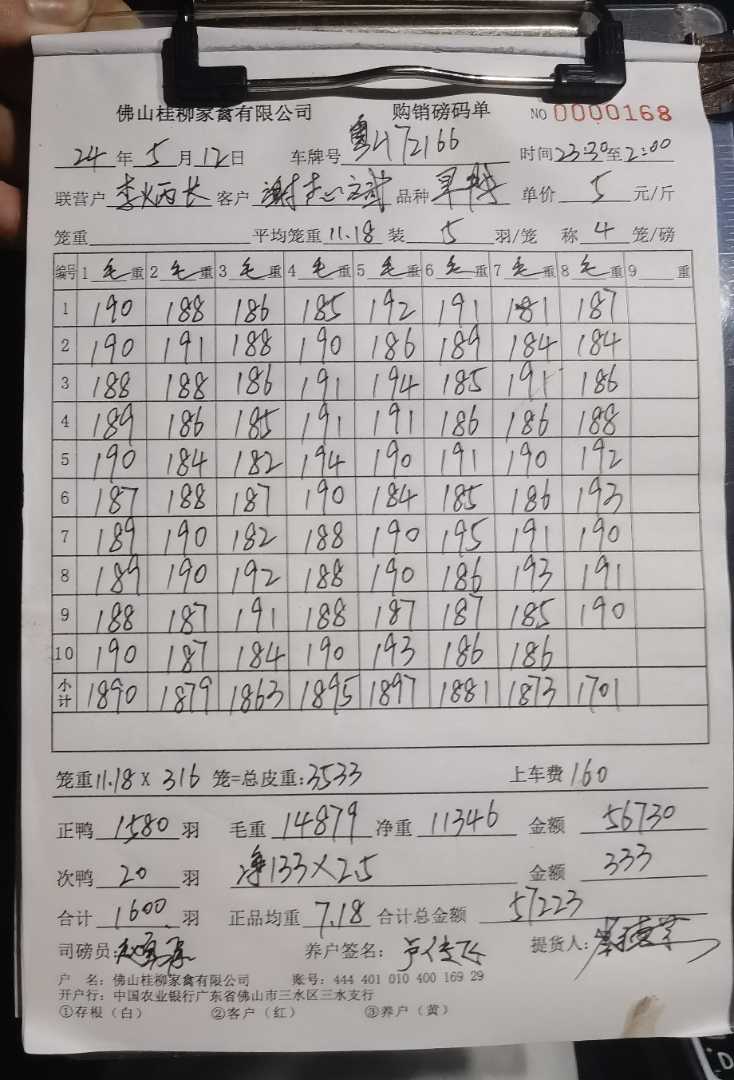 佛山桂柳家禽有限公司 购销磅码单 NO 0000168
24 年 5 月 12 日 车牌号 粤H72166 时间 23:30 至 2:00
联营户 李炳长 客户 品种 单价 5 元/斤
笼重 平均笼重 11.18 装 5 羽/笼 称 4 笼/磅
编号 1 毛 重 2 毛 重 3 毛 重 4 毛 重 5 毛 重 6 毛 重 7 毛 重 8 毛 重 9 重
1 190 188 186 185 192 191 181 187
2 190 191 188 190 186 189 184 184
3 188 188 186 191 194 185 191 186
4 189 186 185 191 191 186 186 188
5 190 184 182 194 190 191 190 192
6 187 188 187 190 184 185 186 193
7 189 190 182 188 190 195 191 190
8 189 190 192 188 190 186 193 191
9 188 187 191 188 187 187 185 190
10 190 187 184 190 193 186 186
小计 1890 1879 1863 1895 1897 1881 1873 1701
笼重 11.18 X 316 笼=总皮重: 3533 上车费 160
正鸭 1580 羽 毛重 14879 净重 11346 金额 56730
次鸭 20 羽 净133×2.5 金额 333
合计 1600 羽 正品均重 7.18 合计总金额 57223
司磅员: 养户签名: 提货人:
户 名: 佛山桂柳家禽有限公司 账号: 444 401 010 400 169 29
开户行: 中国农业银行广东省佛山市三水区三水支行
①存根（白） ②客户（红） ③养户（黄）